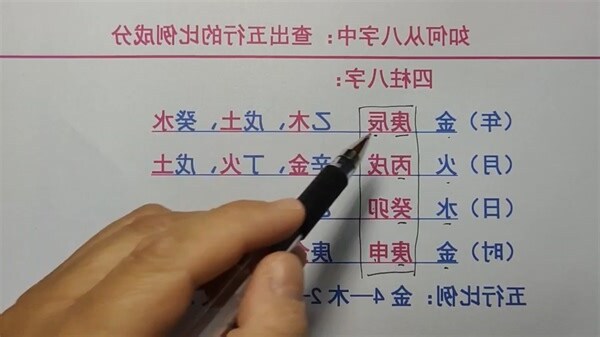 如何从八字中：查出五行的比例成分
四柱八字：
（年）金 庚辰 乙木，戊土，癸水
（月）火 丙戌 辛金，丁火，戊土
（日）水 癸卯
（时）金 庚申 庚
五行比例：金4—木2-